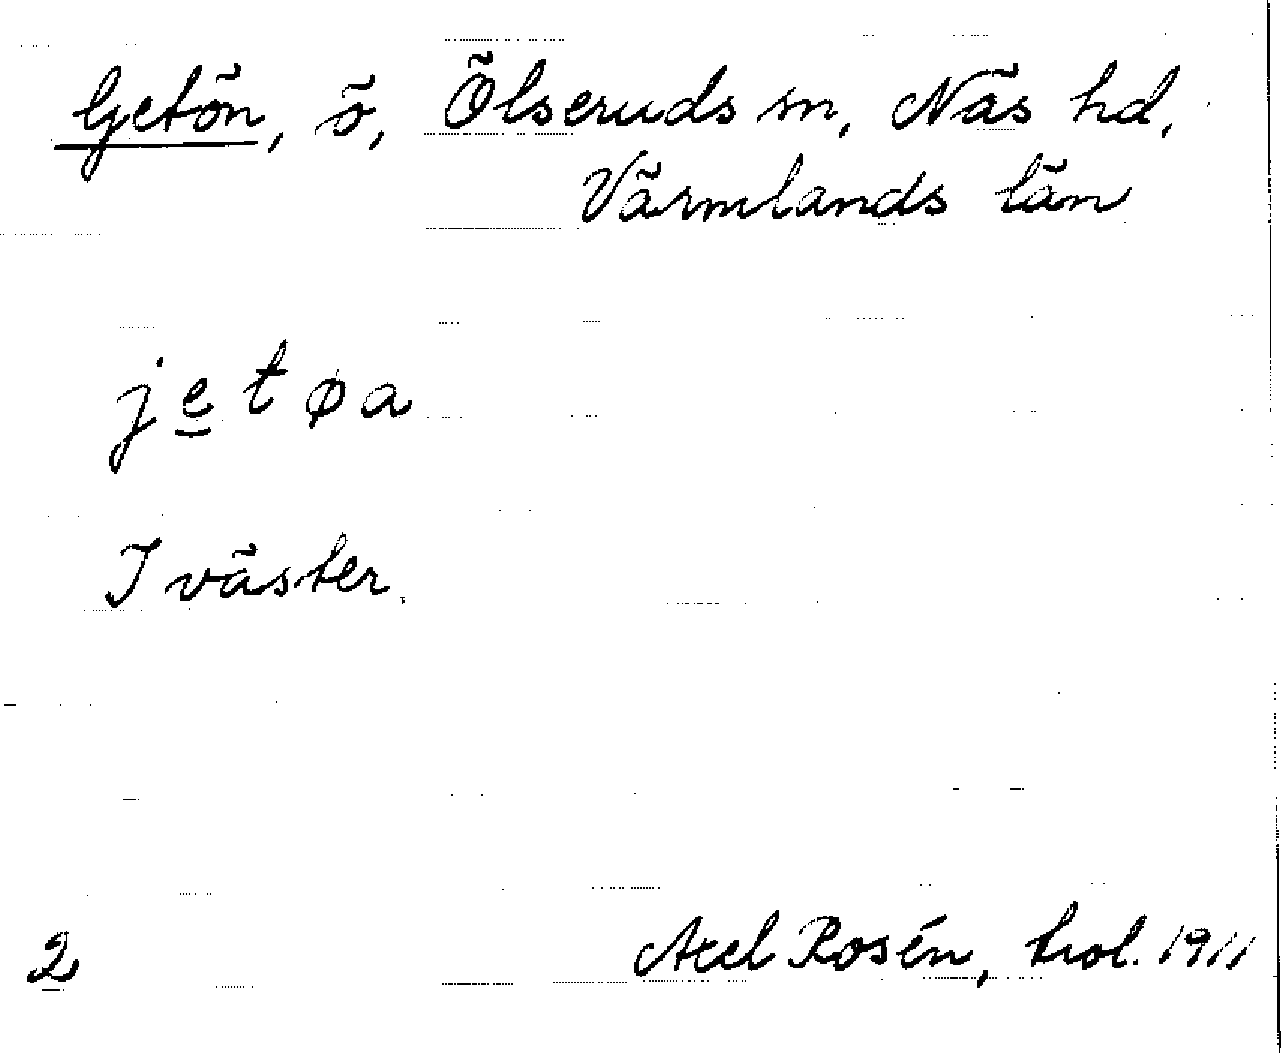 Getön, ö, Ölseruds sn, Näs hd,
Värmlands län
j e t ø a
I väster.
2 Axel Rosén, trol. 1911